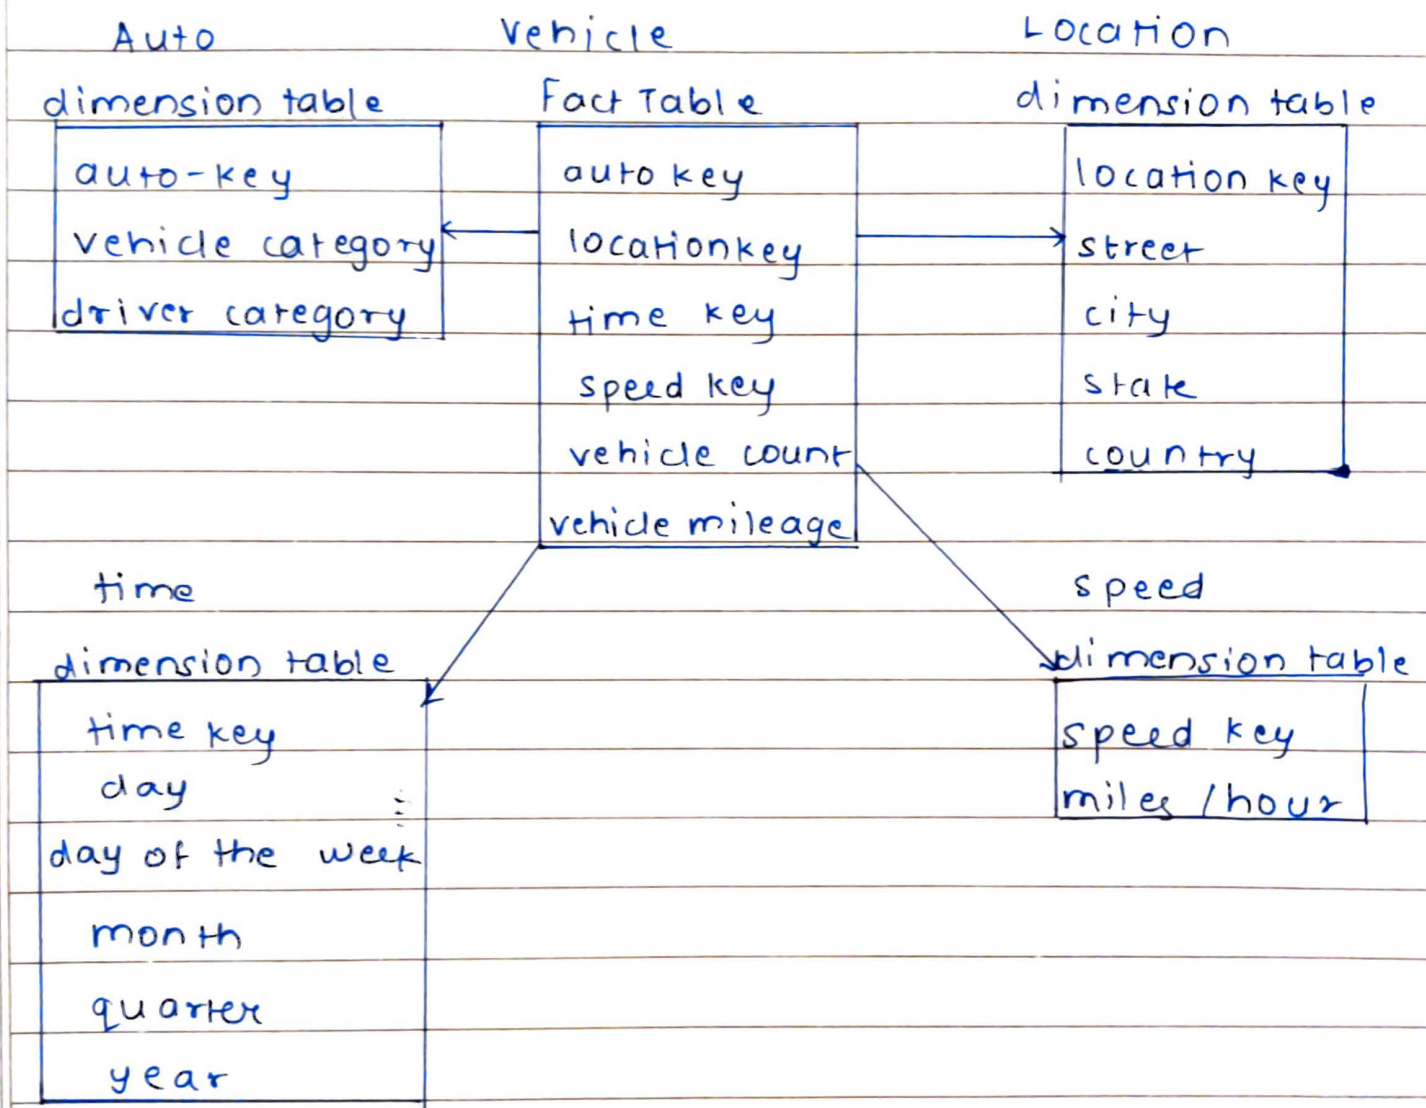 Auto
dimension table
auto-key
vehicle category
driver category
Vehicle
Fact Table
auto key
locationkey
time key
speed key
vehicle count
vehicle mileage
Location
dimension table
location key
street
city
state
country
time
dimension table
time key
day
day of the week
month
quarter
year
speed
dimension table
speed key
miles /hour